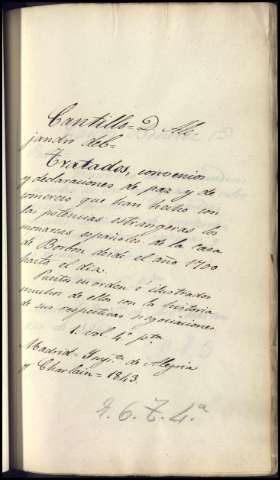 Cantillo = D. Ale-
jandro del =
Tratados, convenios
y declaraciones de paz y de
comercio que han hecho con
las potencias estrangeras los
monarcas españoles de la casa
de Borbon desde el año 1700
hasta el dia.
Puestos en orden é ilustrados
muchos de ellos con la historia
de sus respectivas negociaciones
1 vol. 4º pta
Madrid = Impta de Alegria
y Charlain = 1843.
E. 6. T. 4.ª